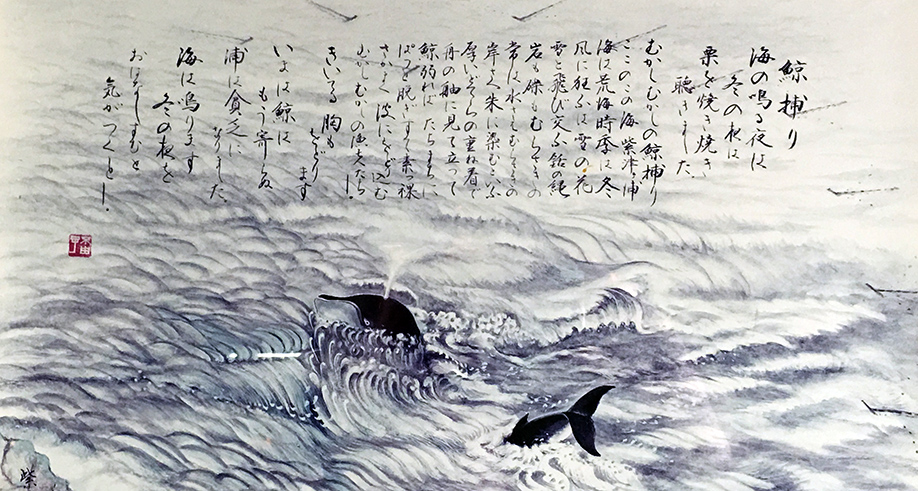 鯨捕り
海の鳴る夜は
冬の夜は
栗を焼き焼き
聴きました。
むかしむかしの鯨捕り
ここのこの海 紫津が浦
海は荒海 時季は冬
風に狂ふは 雪の花
雪と飛び交ふ 銛の縄
岩も礫もむらさきの
常は水さへむらさきの
岸さへ朱に染むといふ
厚いどてらの重ね着で
舟の舳に見て立って
鯨弱ればたちまちに
ぱっと脱ぎすて素っ裸
さかまく波にをどり込む
むかしむかしの漁夫たち―
きいてる胸も
をどります
いまは鯨は
もう寄らぬ
浦は貧乏に
なりました。
海は鳴ります
冬の夜を
おはなしすむと
気がつくと―
紫